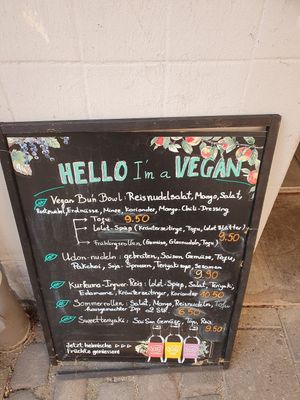 HELLO I'm a VEGAN
Vegan Bun Bowl: Reisnudelsalat, Mango, Salat,
Erdnüsse, Minze, Koriander, Mango-Chili-Dressing
Tofu 9.50
Lolot-Spieß (Kräuterseitlinge, Tofu, Lolot Blätter)
9.50
Frühlingsrollen (Gemüse, Glasnudeln, Tofu)
Udon-nudeln: gebraten, Saison Gemüse, Tofu,
Pakchoi, Soja-Sprossen, Teriyakisoße, Sesamen
9.50
Kurkuma-Ingwer-Reis: Lolot-Spieß, Salat, Teriyaki,
Edamame, Kräuterseitlinge, Koriander 10.50
Sommerrollen: Salat, Mango, Reisnudeln, Tofu
hausgemachter Dip 2 Stk 6.50
Sweetteriyaki: Saison Gemüse, Tofu, Reis
9.50
Jetzt heimische
Früchte genießen!